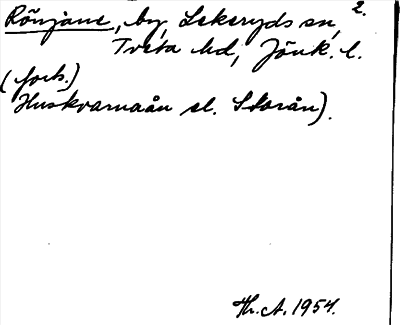 Rönjane, by, Lekeryds sn, 2.
Tveta hd, Jönk. l.
(forts.)
Huskvarnaån el. Storån).
Th. A. 1954.